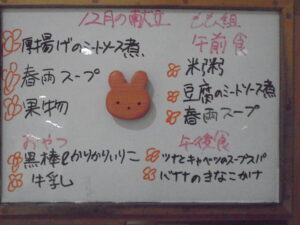 12月の献立
厚揚げのミートソース煮
春雨スープ
果物
おやつ
黒棒とかりかりいりこ
牛乳
組
午前食
米粥
豆腐のミートソース煮
春雨スープ
午後食
ツナとキャベツのスープスパ
バナナのきなこかけ